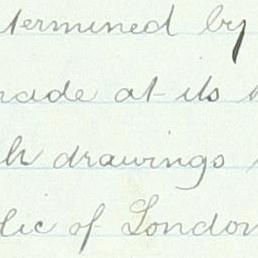 termined by
made at its
drawings
lic of London